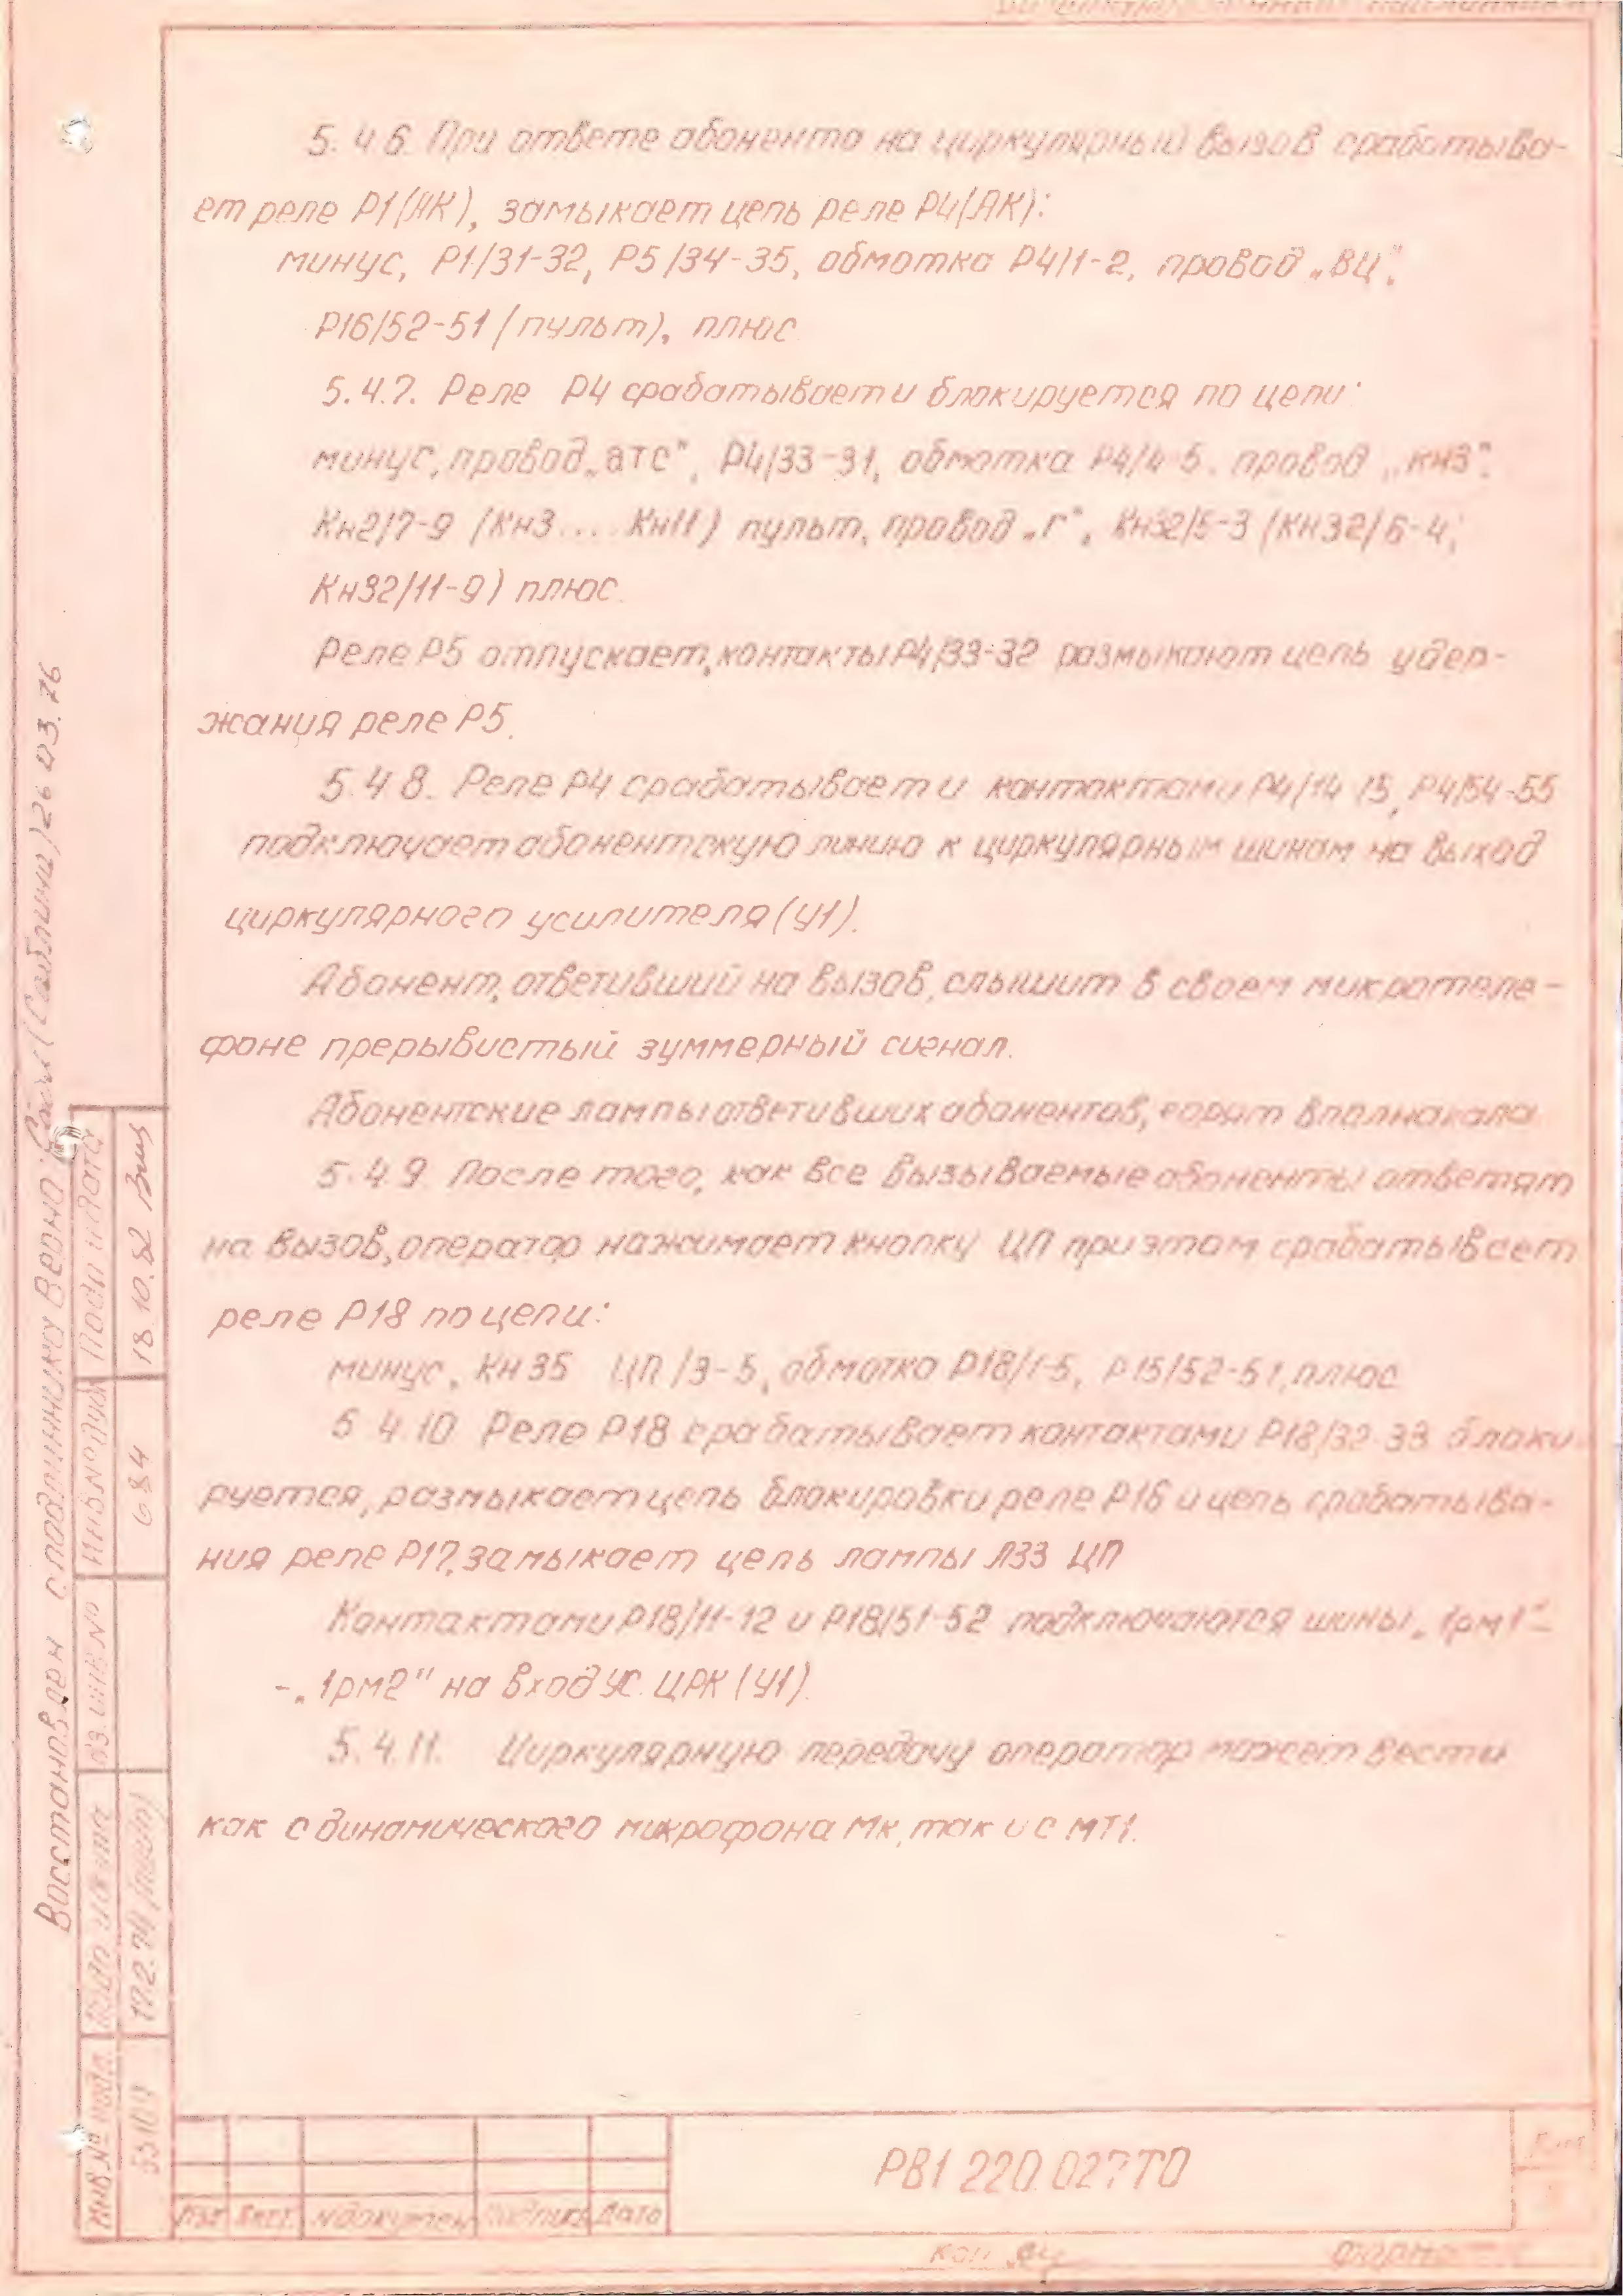 5.4.6. При ответе абонента на циркулярный вызов срабатыва-
ет реле Р1(АК), замыкает цепь реле Р4(АК):
минус, Р1/31-32, Р5/34-35, обмотка Р4/1-2, провод „ВЦ",
Р16/52-51 (пульт), плюс.
5.4.7. Реле Р4 срабатывает и блокируется по цепи:
минус, провод „атс", Р4/33-31, обмотка Р4/4-5. провод „КН3",
Кн2/7-9 (Кн3.... Кн11) пульт, провод „Г", Кн32/5-3 (КН32/6-4;
Кн32/11-9) плюс.
Реле Р5 отпускает, контакты Р4/33-32 размыкают цепь удер-
жания реле Р5.
5.4.8. Реле Р4 срабатывает и контактами Р4/14-15, Р4/54-55
подключает абонентскую линию к циркулярным шинам на выход
циркулярного усилителя (У1).
Абонент, ответивший на вызов, слышит в своем микротеле-
фоне прерывистый зуммерный сигнал.
Абонентские лампы ответивших абонентов, горят вполнакала.
5.4.9. После того, как все вызываемые абоненты ответят
на вызов, оператор нажимает кнопку ЦП при этом срабатывает
реле Р18 по цепи:
минус, Кн 35 ЦП/3-5, обмотка Р18/1-5, Р15/52-51, плюс
5.4.10. Реле Р18 срабатывает контактами Р18/32-33 блоки-
руется, размыкает цепь блокировки реле Р16 и цепь срабатыва-
ния реле Р17, замыкает цепь лампы Л33 ЦП
Контактами Р18/11-12 и Р18/51-52 подключаются шины „1рм1"-
-„1рм2" на вход УС. ЦРК (У1).
5.4.11. Циркулярную передачу оператор может вести
как с динамического микрофона Мк, так и с МТ1.
Восстановлен с подлинника Верно: (Саблина) 26.03.76
Подп. и дата
18.10.82
Инв.№ дубл
684
вз. инв. №
Подп. и дата
Инв.№ подл.
РВ1.220.027ТО
Изм Лист № докумен Подпись Дата
Лист
Коп.
Формат